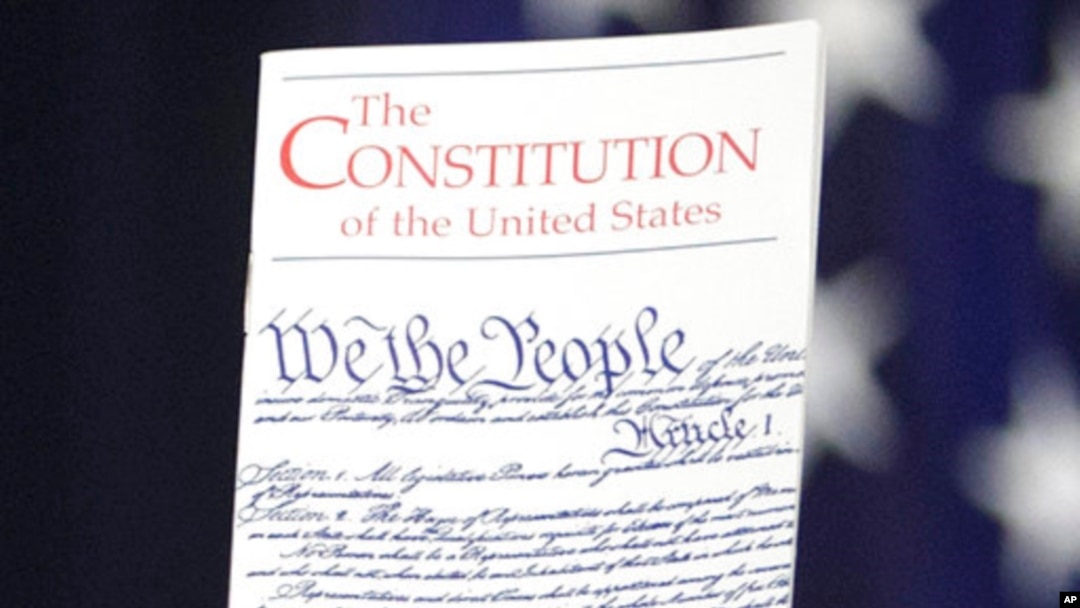 The
CONSTITUTION
of the United States
We the People of the Unit
insure domestic Tranquility, provide for the common defence, promo
and our Posterity, do ordain and establish this Constitution for the
Article I.
Section 1. All legislative Powers herein granted shall be vested in
of Representatives.
Section 2. The House of Representatives shall be composed of Mem
in each State shall have Qualifications requisite for Electors of the most numerous
No Person shall be a Representative who shall not have attained
and who shall not, when elected, be an Inhabitant of that State in which
Representatives and direct Taxes shall be apportioned among the several
AP